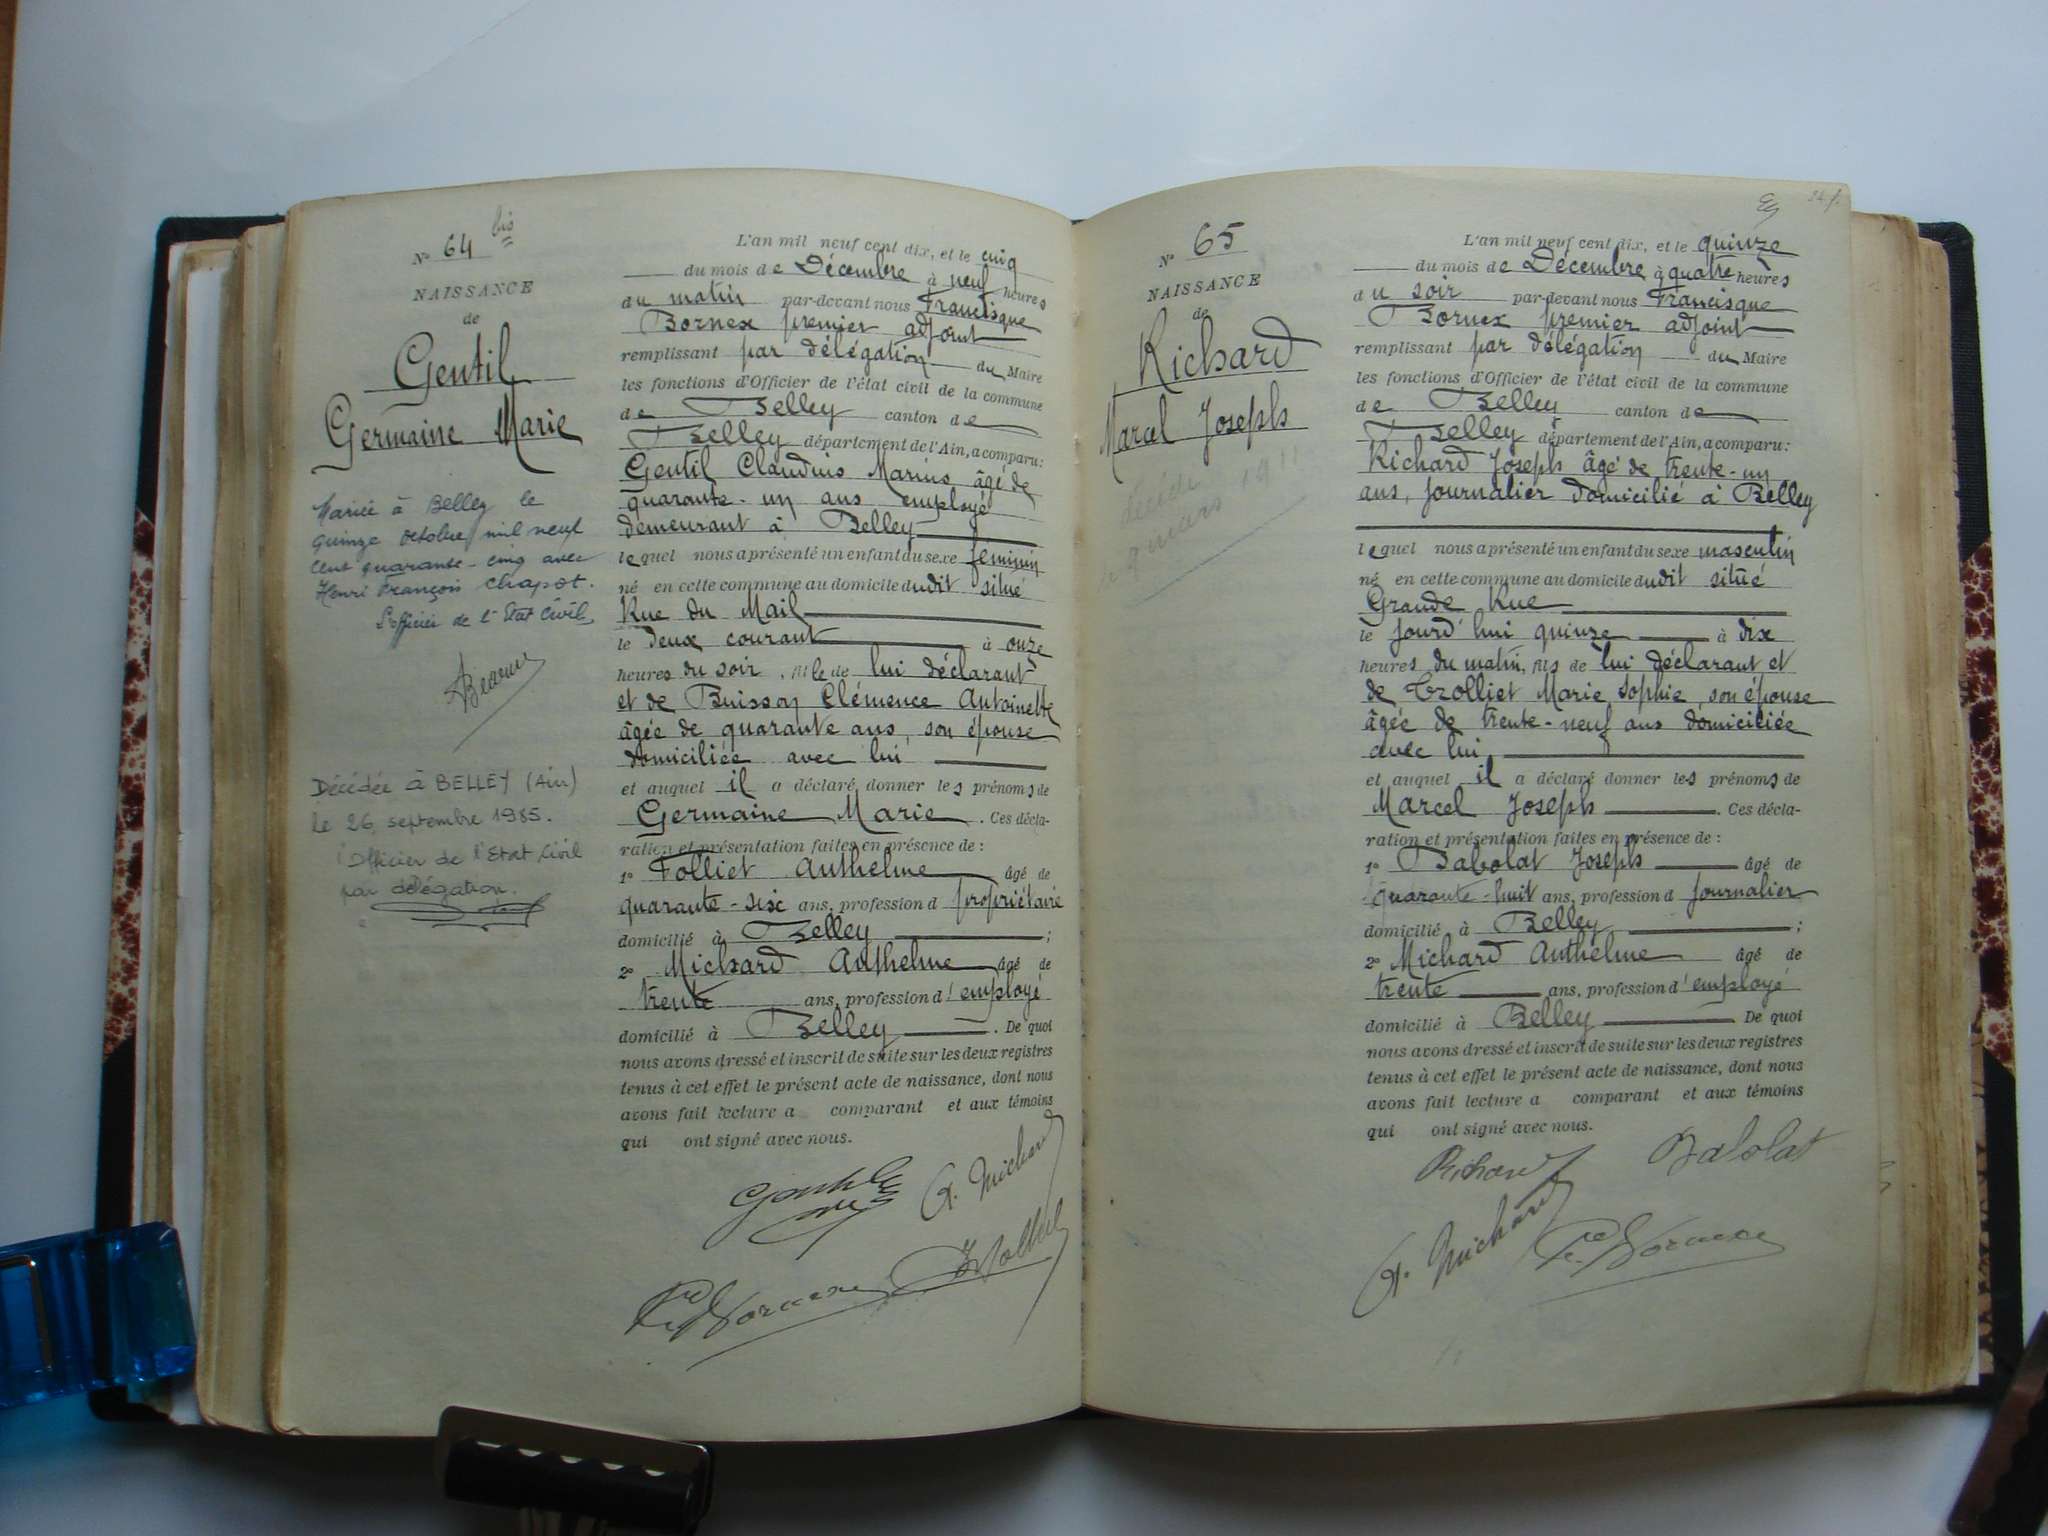 Nº 64 bis
NAISSANCE
de
Gentil
Germaine Marie
Mariée à Belley le
quinze octobre mil neuf
cent quarante-cinq avec
Henri François Chapot.
L'officier de l'Etat Civil,
Décédée à BELLEY (Ain)
le 26 septembre 1985.
l'Officier de l'Etat Civil
par délégation.
L'an mil neuf cent dix, et le cinq
du mois de Décembre à neuf heures
du matin par-devant nous Francisque
Bornex premier adjoint
remplissant par délégation du Maire
les fonctions d'Officier de l'état civil de la commune
de Belley canton de
Belley département de l'Ain, a comparu:
Gentil Claudius Marius âgé de
quarante-un ans employé
demeurant à Belley
lequel nous a présenté un enfant du sexe féminin
né en cette commune au domicile dudit situé
Rue du Mail
le deux courant à onze
heures du soir, fille de lui déclarant
et de Buisson Clémence Antoinette
âgée de quarante ans, son épouse
domiciliée avec lui
et auquel il a déclaré donner les prénoms de
Germaine Marie. Ces décla-
ration et présentation faites en présence de :
1º Folliet Anthelme âgé de
quarante-six ans, profession d propriétaire
domicilié à Belley ;
2º Michard Anthelme âgé de
trente ans, profession d'employé
domicilié à Belley. De quoi
nous avons dressé et inscrit de suite sur les deux registres
tenus à cet effet le présent acte de naissance, dont nous
avons fait lecture a comparant et aux témoins
qui ont signé avec nous.
Gentil
A. Michard
Fc Bornex
Nº 65
NAISSANCE
de
Richard
Marcel Joseph
décédé
9 mars 1911
L'an mil neuf cent dix, et le quinze
du mois de Décembre à quatre heures
du soir par-devant nous Francisque
Bornex premier adjoint
remplissant par délégation du Maire
les fonctions d'Officier de l'état civil de la commune
de Belley canton de
Belley département de l'Ain, a comparu:
Richard Joseph âgé de trente-un
ans, journalier domicilié à Belley
lequel nous a présenté un enfant du sexe masculin
né en cette commune au domicile dudit situé
Grande Rue
le jourd'hui quinze à dix
heures du matin, fils de lui déclarant et
de Trolliet Marie Sophie, son épouse
âgée de trente-neuf ans domiciliée
avec lui
et auquel il a déclaré donner les prénoms de
Marcel Joseph. Ces décla-
ration et présentation faites en présence de :
1º Babolat Joseph âgé de
quarante-huit ans, profession d journalier
domicilié à Belley ;
2º Michard Anthelme âgé de
trente ans, profession d'employé
domicilié à Belley De quoi
nous avons dressé et inscrit de suite sur les deux registres
tenus à cet effet le présent acte de naissance, dont nous
avons fait lecture a comparant et aux témoins
qui ont signé avec nous.
Richard
Babolat
A. Michard
Fc Bornex